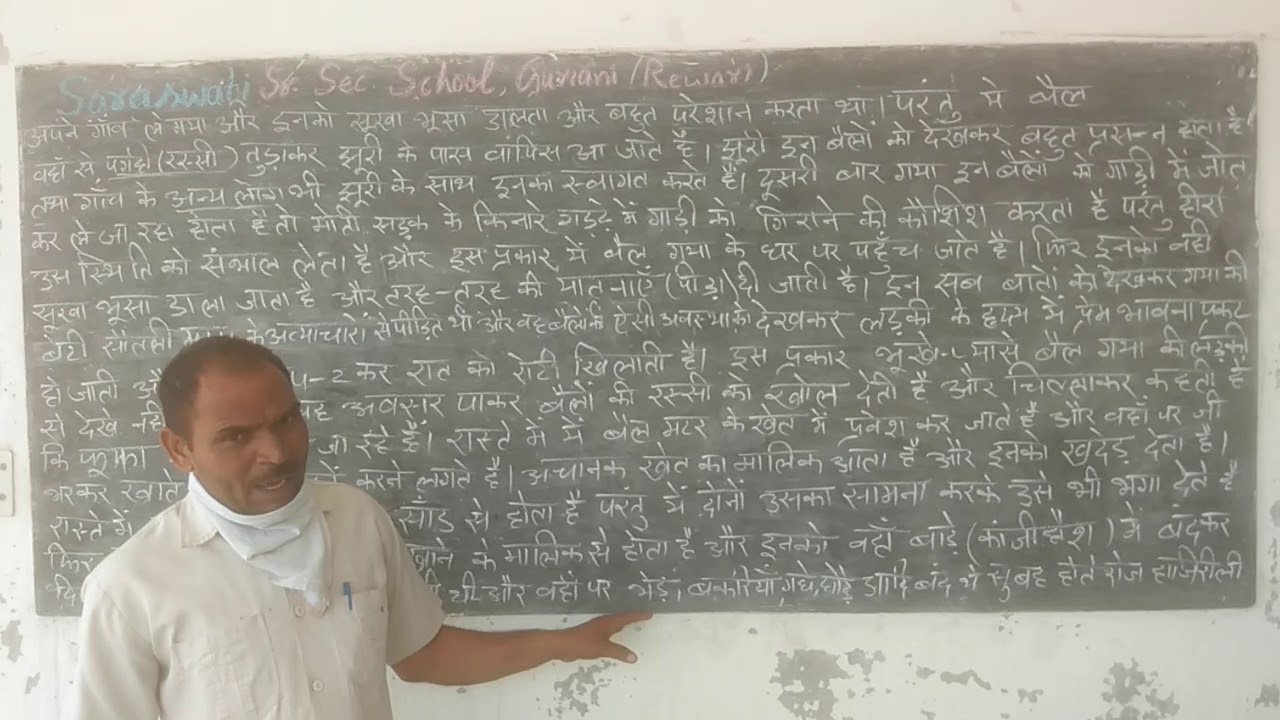 Saraswati Sr. Sec. School, Guriani (Rewari)
अपने गाँव ले गया और इनको सूखा भूसा डालता और बहुत परेशान करता था। परंतु ये बैल
वहाँ से पगही (रस्सी) तुड़ाकर झूरी के पास वापिस आ जाते हैं। झूरी इन बैलों को देखकर बहुत प्रसन्न होता है
तथा गाँव के अन्य लोग भी झूरी के साथ इनका स्वागत करते हैं। दूसरी बार गया इन बैलों को गाड़ी में जोत
कर ले जा रहा होता है तो मोती सड़क के किनारे गड्ढे में गाड़ी को गिराने की कोशिश करता है परंतु हीरा
उस स्थिति को संभाल लेता है और इस प्रकार ये बैल गया के घर पर पहुँच जाते हैं। फिर इनको वही
सूखा भूसा डाला जाता है और तरह-तरह की यातनाएँ (पीड़ा) दी जाती है। इन सब बातों को देखकर गया की
बेटी सौतेली के अत्याचारों से पीड़ित थी और वह बैलों की ऐसी अवस्था को देखकर लड़की के हृदय में प्रेम भावना प्रकट
हो जाती कर रात को रोटी खिलाती है। इस प्रकार भूखे-प्यासे बैल गया की लड़की
से देखे अवसर पाकर बैलों की रस्सी को खोल देती है और चिल्लाकर कहती है
कि फूफा जा रहे हैं। रास्ते में ये बैल मटर के खेत में प्रवेश कर जाते हैं और वहाँ पर जी
भरकर खाते करने लगते हैं। अचानक खेत का मालिक आता है और इनको खदेड़ देता है।
रास्ते में साँड से होता है परंतु ये दोनों उसका सामना करके उसे भी भगा देते हैं
फिर के मालिक से होता है और इनको वहाँ बाड़े (कांजीहौश) में बंदकर
थी और वहाँ पर भेड़ें, बकरियाँ, गधे, घोड़े आदि बंद थे सुबह होते रोज हाजिरी ली